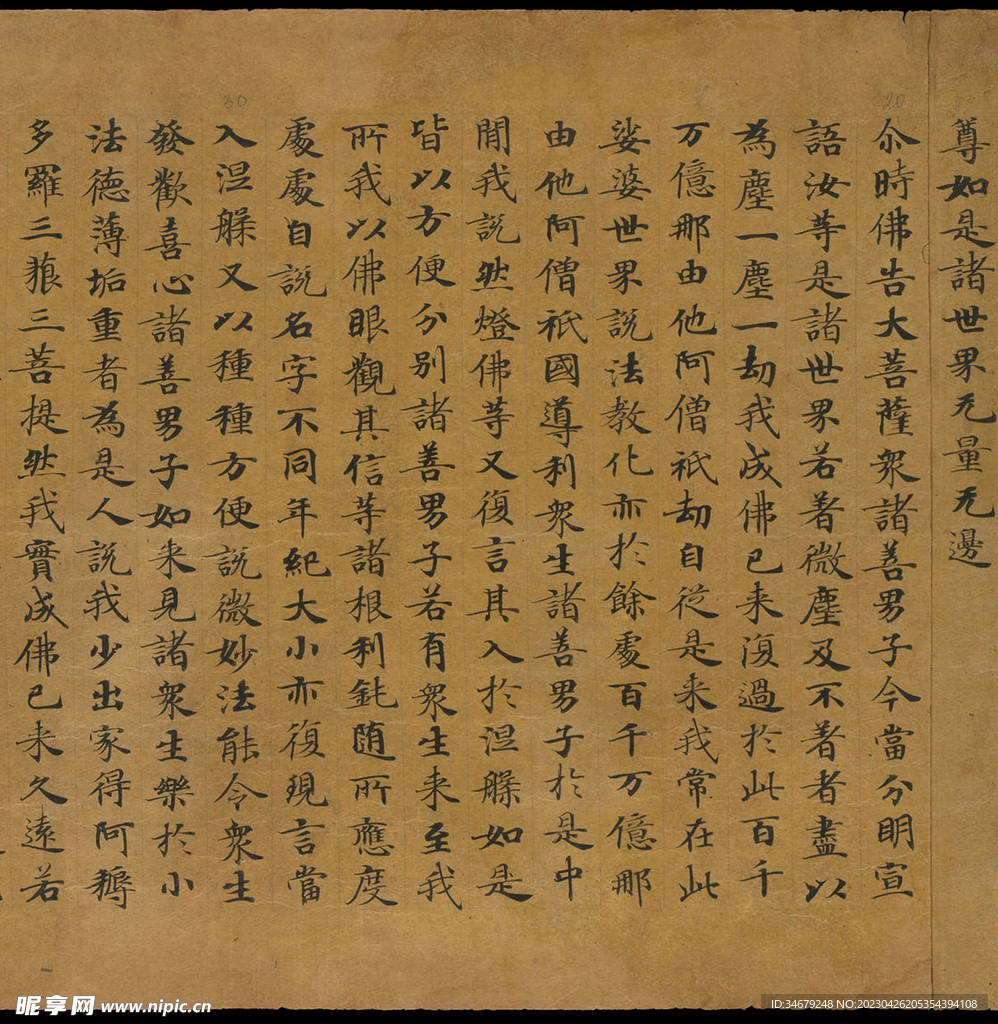 尊如是諸世界无量无邊
尒時佛告大菩薩衆諸善男子今當分明宣
語汝等是諸世界若著微塵及不著者盡以
為塵一塵一劫我成佛已来復過於此百千
万億那由他阿僧祇劫自従是来我常在此
娑婆世界説法教化亦於餘處百千万億那
由他阿僧祇國導利衆生諸善男子於是中
閒我説然燈佛等又復言其入於涅槃如是
皆以方便分别諸善男子若有衆生来至我
所我以佛眼觀其信等諸根利鈍随所應度
處處自説名字不同年紀大小亦復現言當
入涅槃又以種種方便説微妙法能令衆生
發歡喜心諸善男子如来見諸衆生樂於小
法德薄垢重者為是人説我少出家得阿耨
多羅三藐三菩提然我實成佛已来久遠若
30
20
昵享网 www.nipic.cn
ID:34679248 NO:20230426205354394108